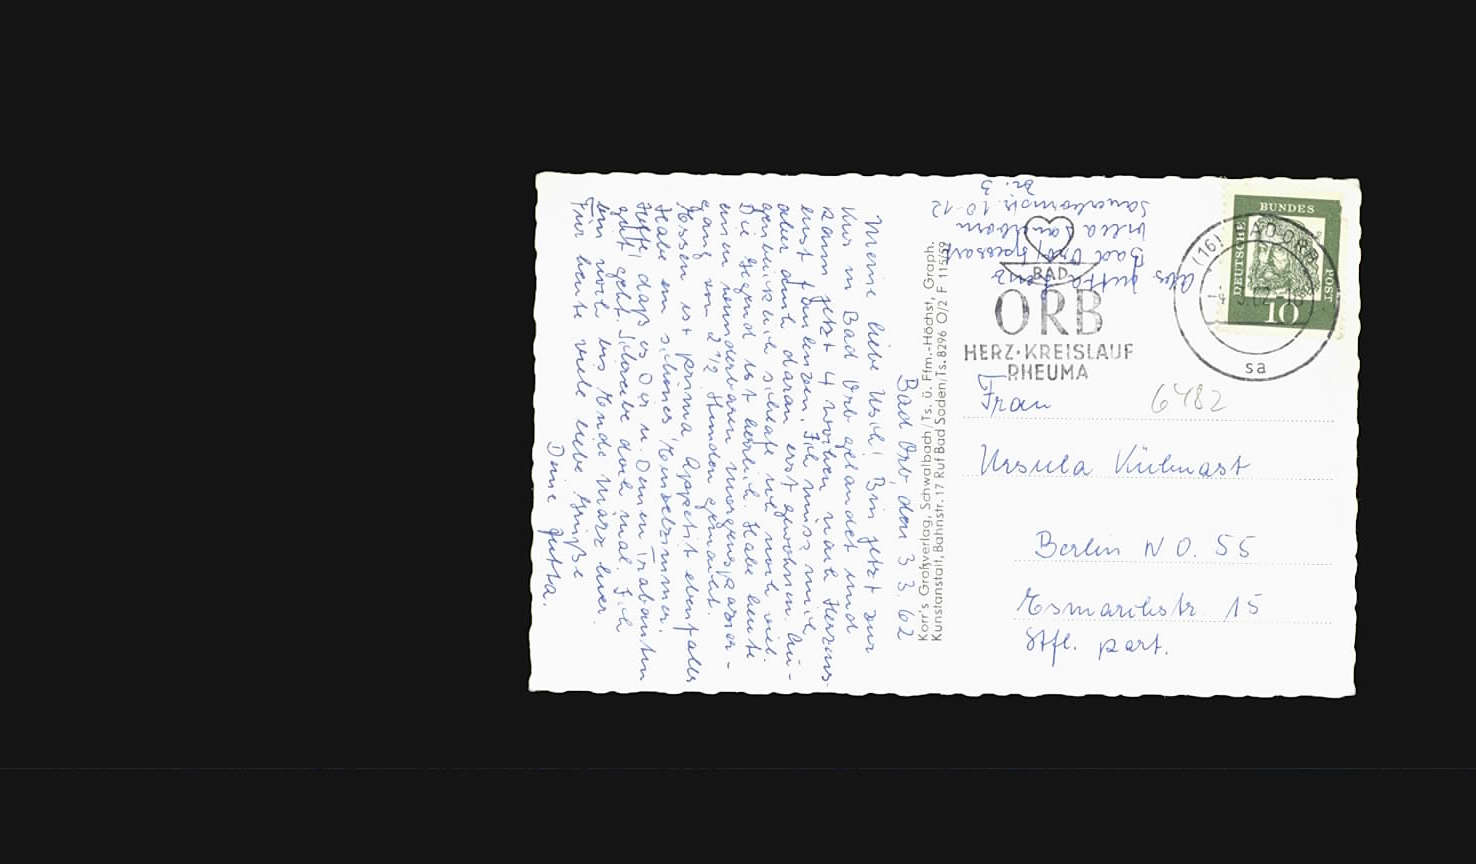 Bad Orb, den 3.3.62
Meine liebe Ursch! Bin jetzt zur
Kur in Bad Orb gelandet und
kann jetzt 4 Wochen nach Herzens-
lust faulenzen. Ich muss mich
aber auch daran erst gewöhnen. Au-
genblicklich schlafe ich noch viel.
Die Gegend ist herrlich. Habe heute
einen wunderbaren Morgenspazier-
gang von 2 1/2 Stunden gemacht.
Essen ist prima, Appetit ebenfalls
Habe ein schönes Einzelzimmer.
Hoffe, daß es Dir u. Deinen
gut geht. Schreibe doch mal. Ich
bin noch bis Ende März hier.
Für heute viele liebe Grüße
Deine Jutta.
Korr's Grofverlag, Schwalbach/Ts. ü. Ffm.-Höchst, Graph.
Kunstanstalt, Bahnstr. 17 Ruf Bad Soden/Ts. 8296 O/2 F 115/59
Abs. Jutta
Bad Orb/Spessart
Villa Sauerborn
Sauerbornstr. 10-12
Zi. 3
BAD
ORB
HERZ·KREISLAUF
RHEUMA
(16) BAD ORB
sa
DEUTSCHE BUNDES POST
10
Frau
6482
Ursula Kühnast
Berlin NO. 55
Esmarchstr. 15
Stfl. part.